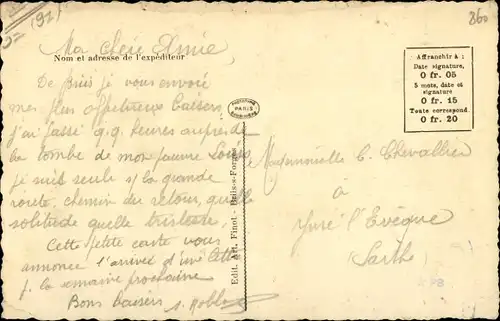 (91)
5=
360
Ma chère Elmie,
Nom et adresse de l'expéditeur
De Briis je vous envoie
mes plus affectueux baisers
j'ai passé q.q. heures auprès de
la tombe de mon pauvre Louis
je suis seule s/ la grande
route, chemin du retour, quelle
solitude quelle tristesse,
Cette petite carte vous
annonce l'arrivée d'une
p. la semaine prochaine
Bons baisers
PARIS
Edit. Art. Finot - Briis-s-Forges
Affranchir à :
Date signature,
0 fr. 05
5 mots, date et
signature
0 fr. 15
Toute correspond.
0 fr. 20
Mademoiselle C. Chevallier
à
Yvré l'Evêque
(Sarthe)